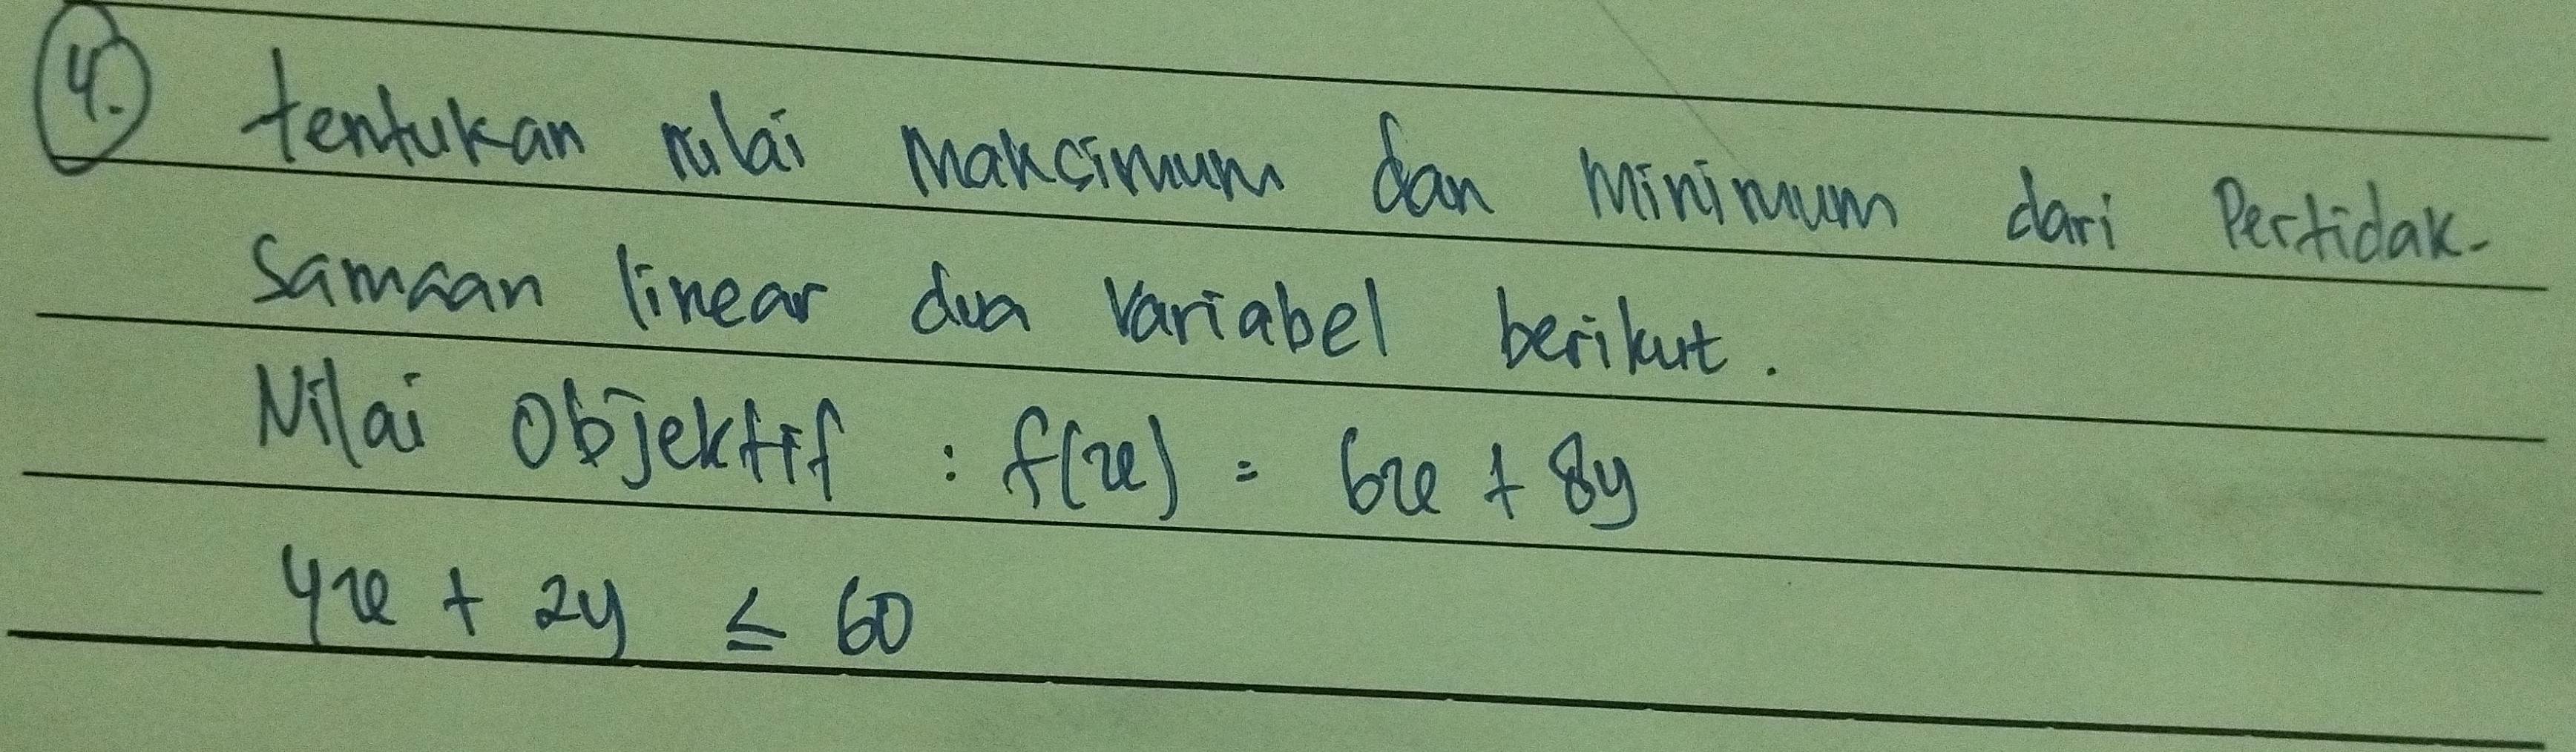 4. tentukan nilai Makcimum dan Minimum dari Pertidak-
samaan linear dua variabel berikut.
Nilai Objektif : f(x) = 6x + 8y
4x + 2y ≤ 60